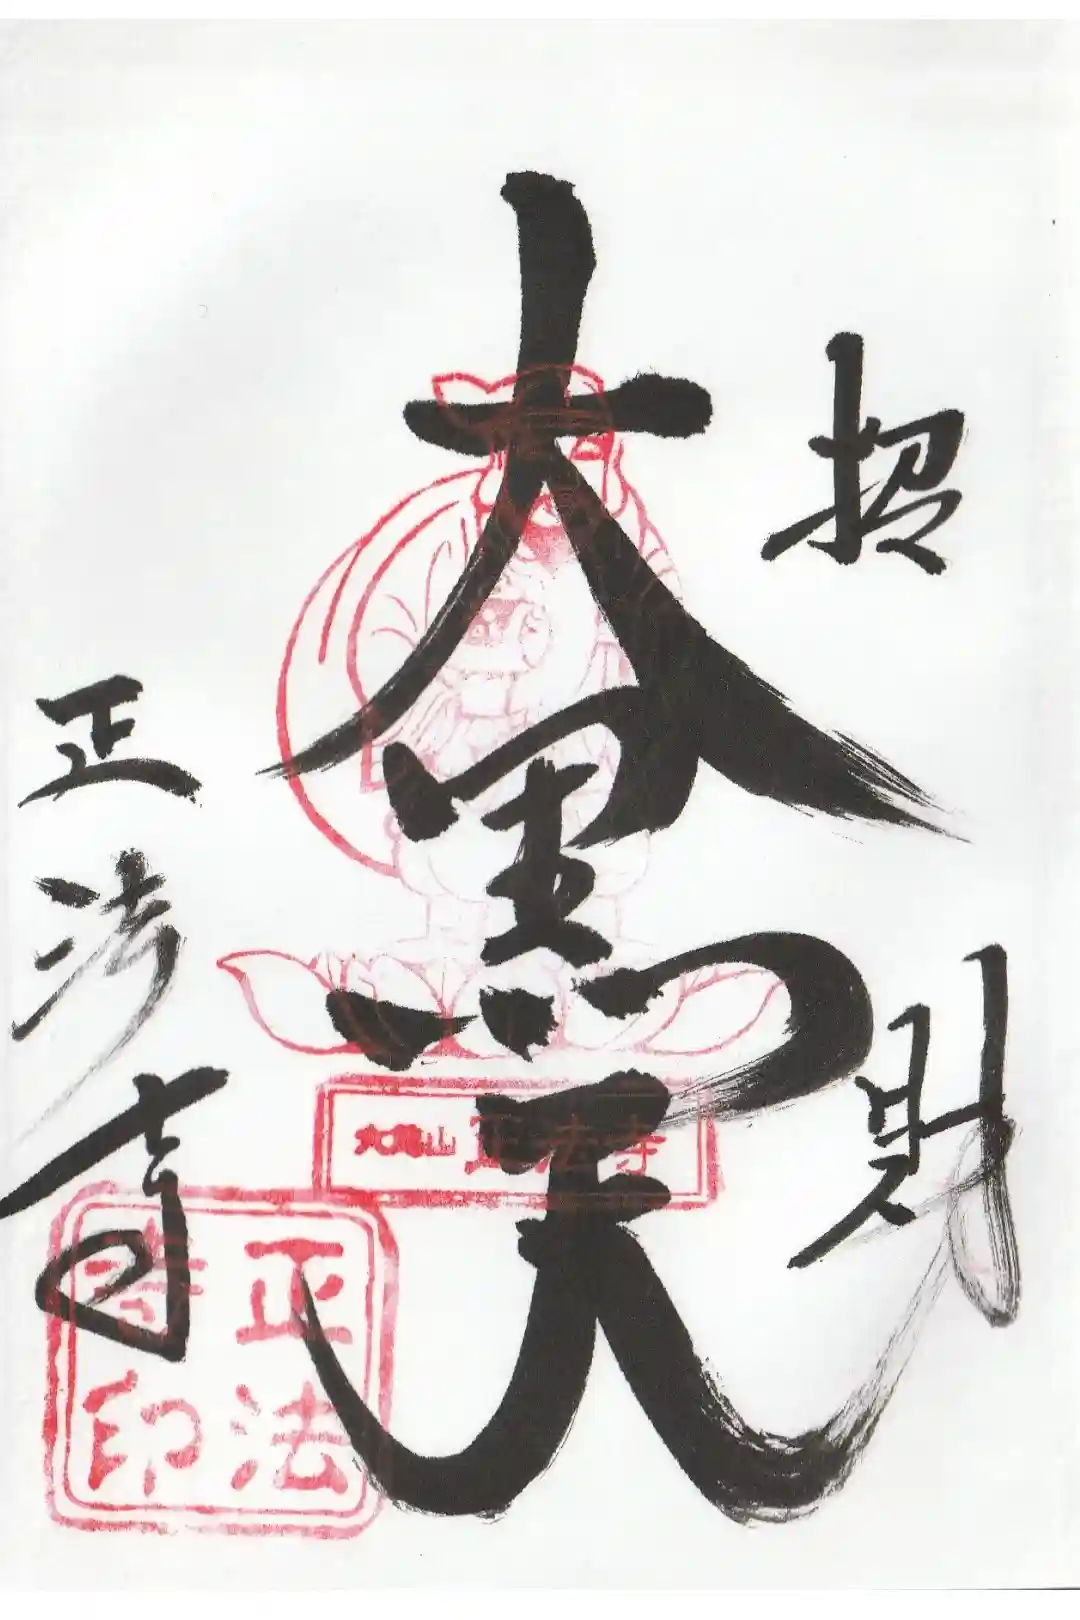 招財
大黒天
正法寺
山 正法寺
正法
寺印